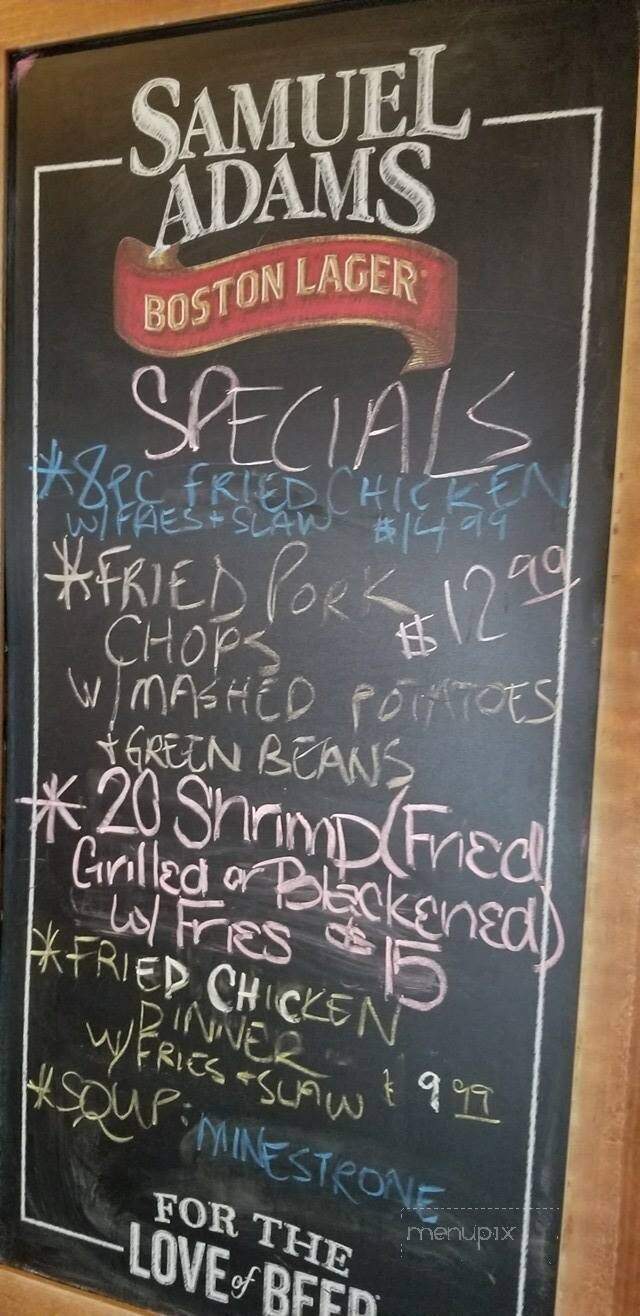 SAMUEL
ADAMS
BOSTON LAGER
SPECIALS
*8PC FRIED CHICKEN
W/FRIES + SLAW $14.99
*FRIED PORK
CHOPS $12.99
W/MASHED POTATOES
+ GREEN BEANS
* 20 Shrimp (Fried
Grilled or Blackened)
w/ Fries $15
*FRIED CHICKEN
DINNER
W/FRIES + SLAW $9.99
*SOUP: MINESTRONE
FOR THE
LOVE of BEER
menupix